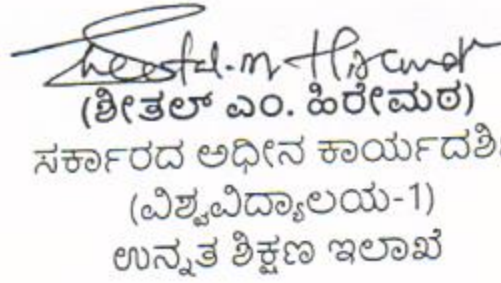 Sheetal.m.
(ಶೀತಲ್ ಎಂ. ಹಿರೇಮಠ)
ಸರ್ಕಾರದ ಅಧೀನ ಕಾರ್ಯದರ್ಶಿ
(ವಿಶ್ವವಿದ್ಯಾಲಯ-1)
ಉನ್ನತ ಶಿಕ್ಷಣ ಇಲಾಖೆ